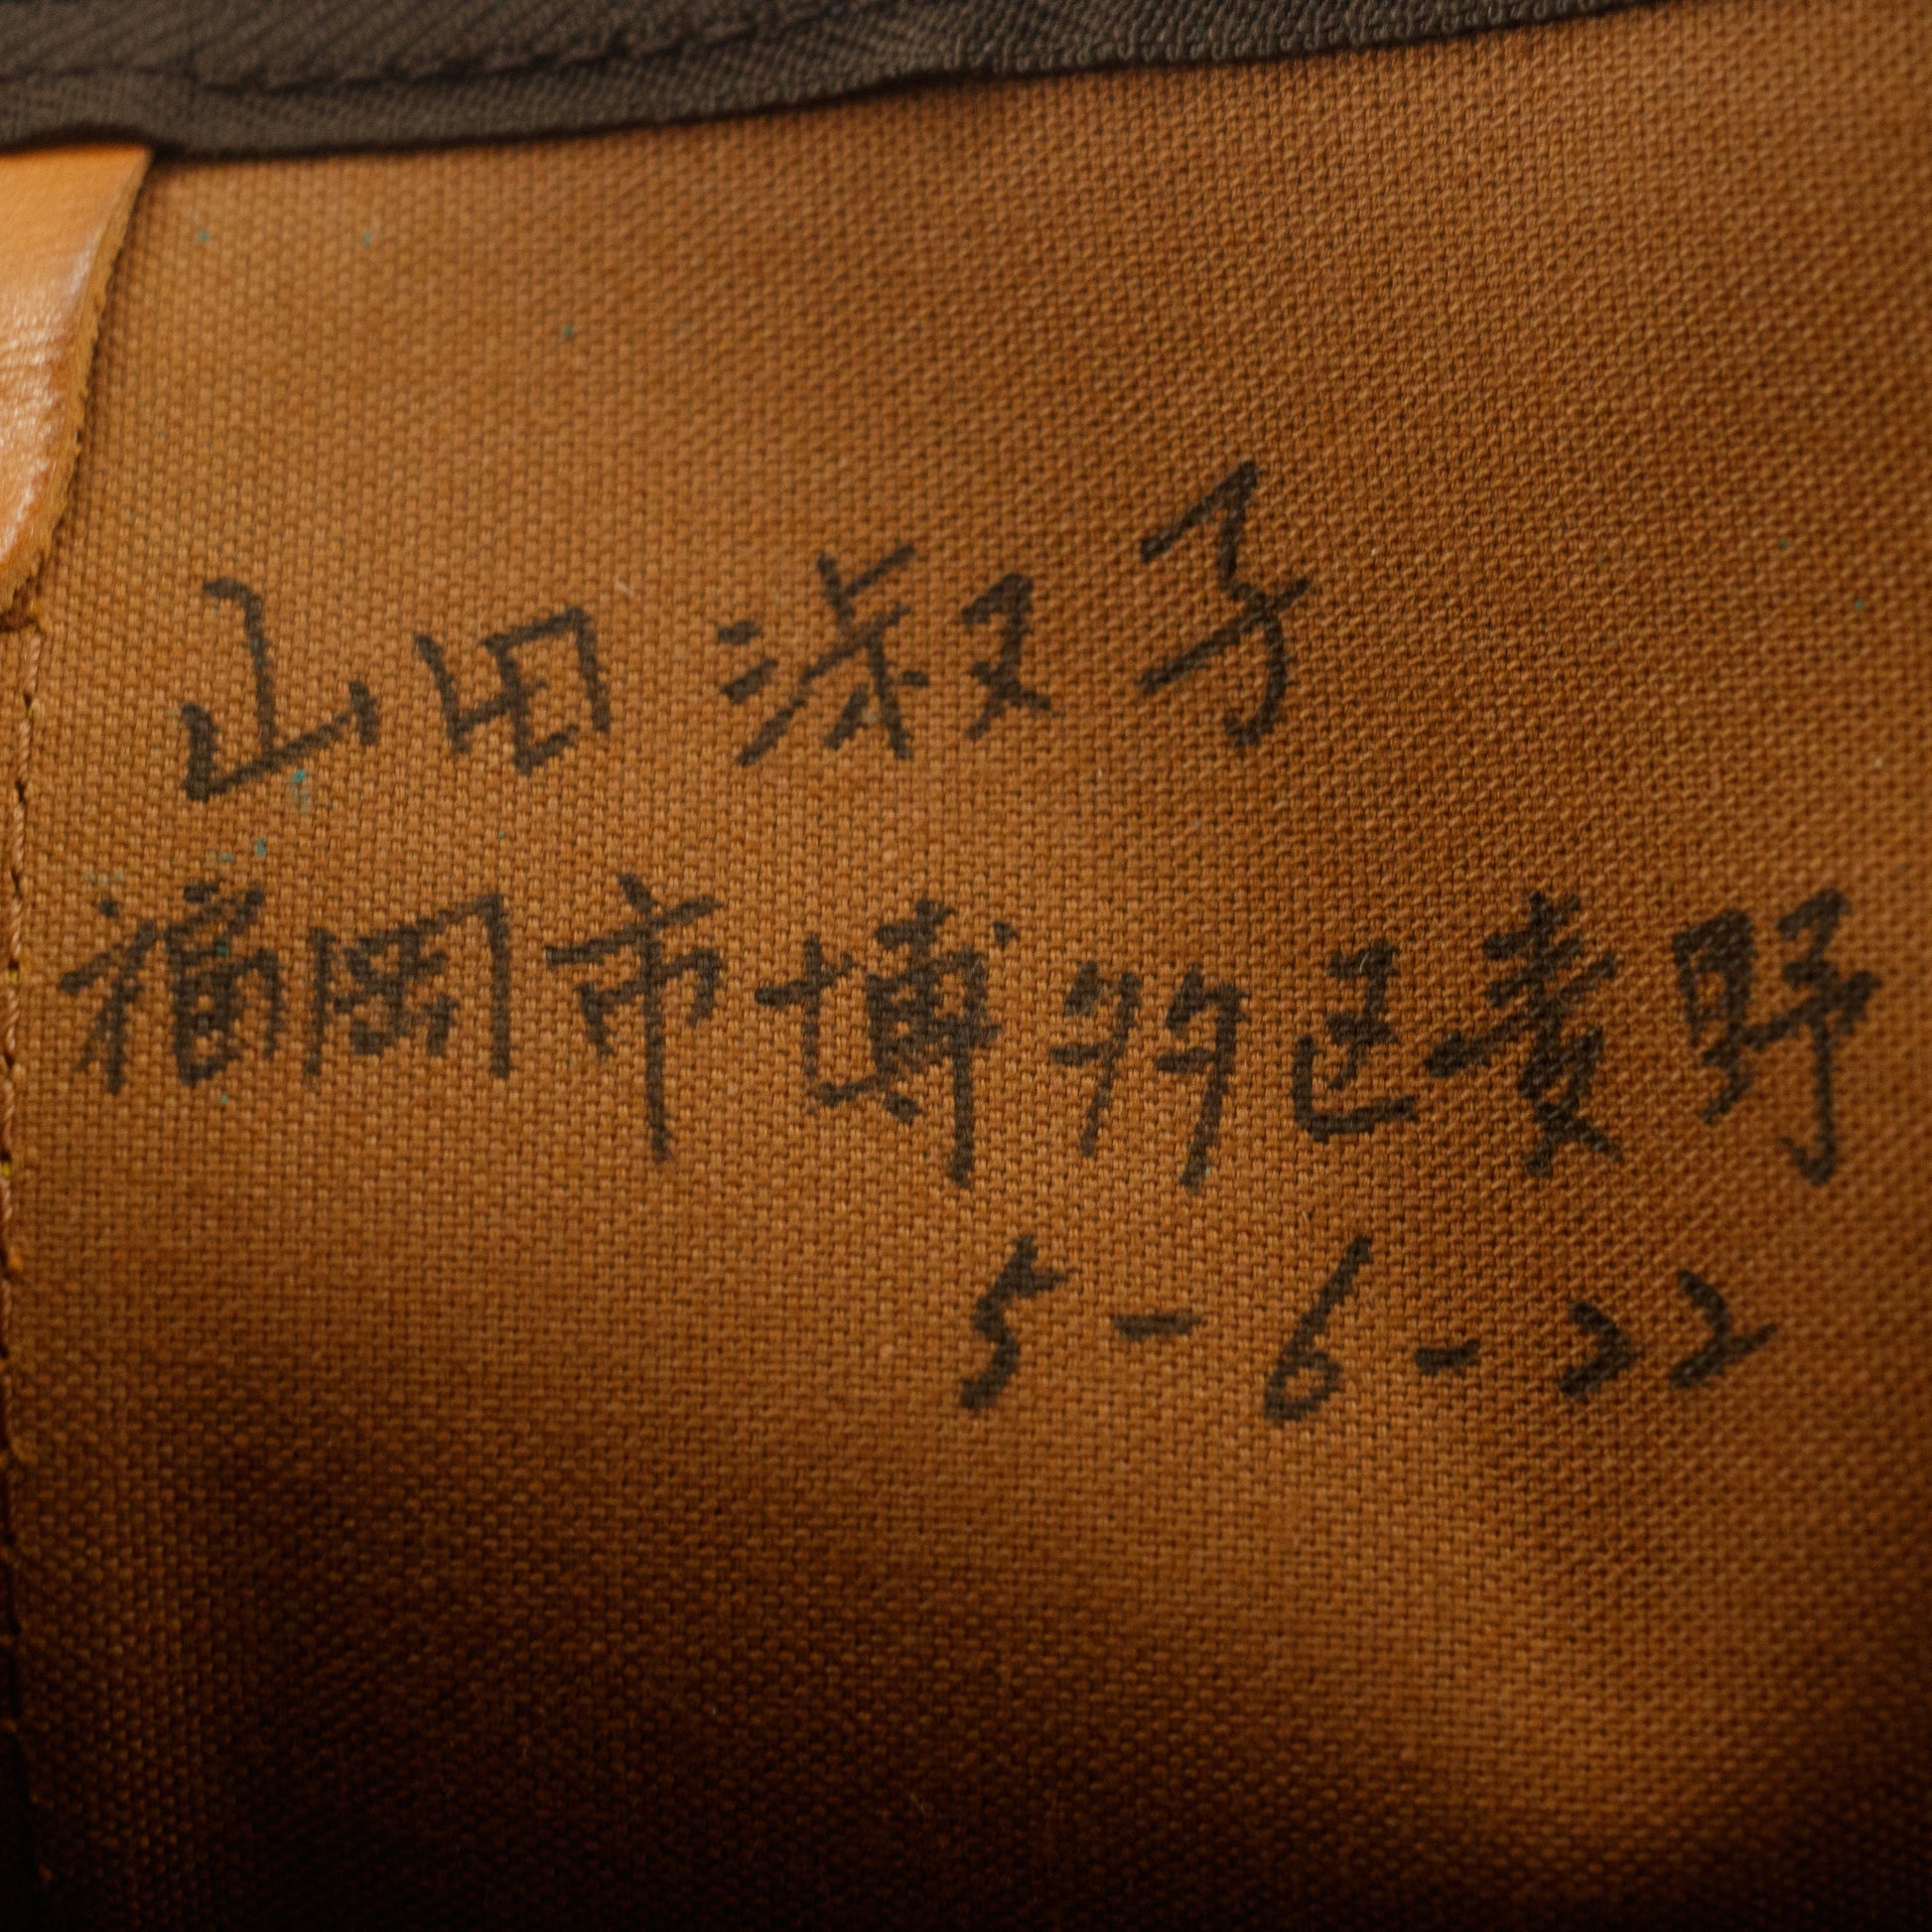 山田淑子
福岡市博多区麦野
5-6-22